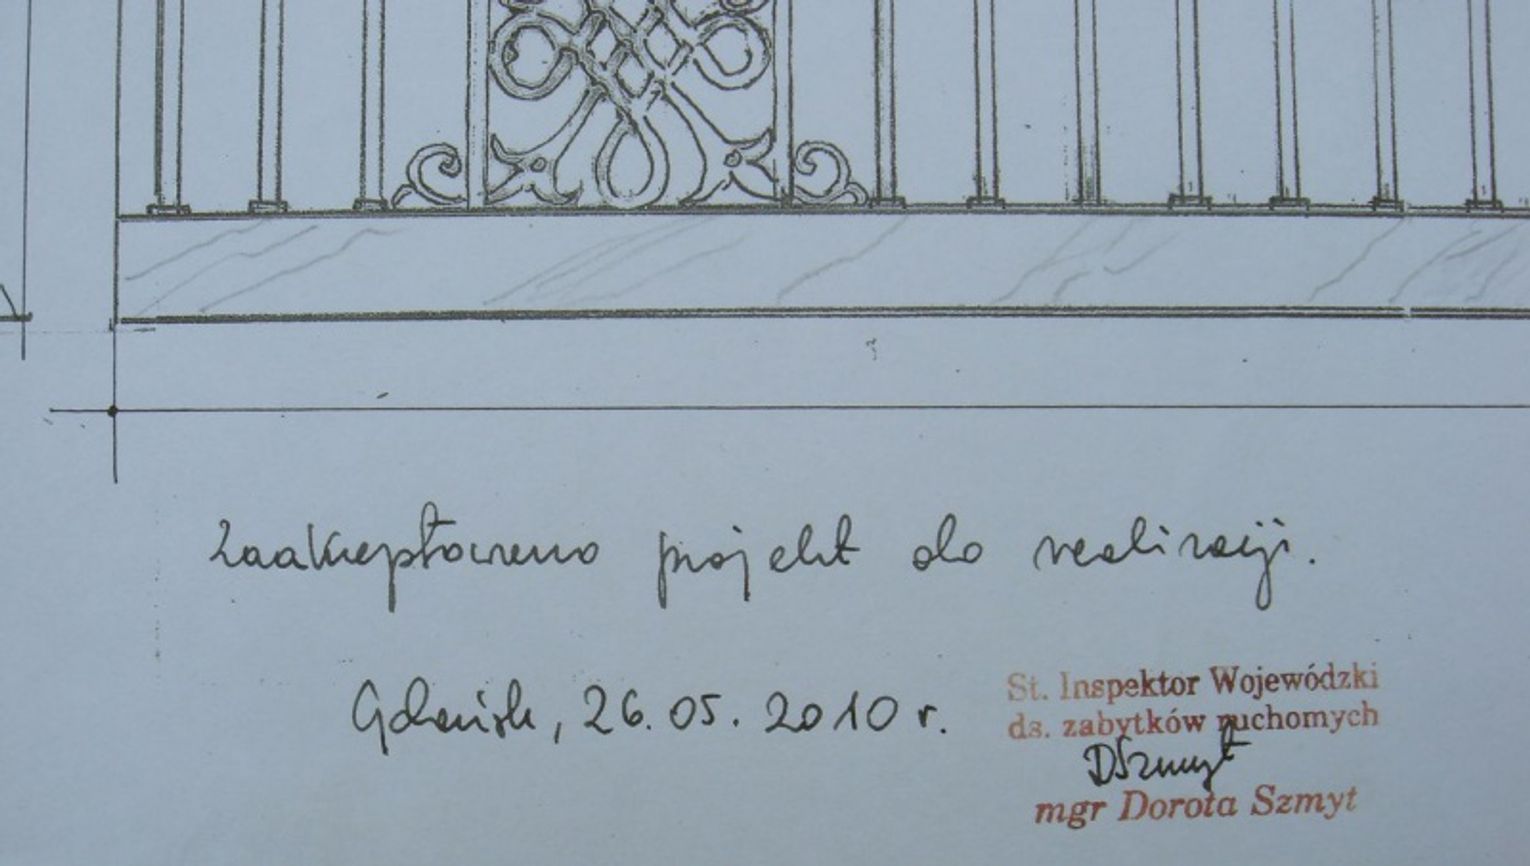 Zaakceptowano projekt do realizacji.
Gdańsk, 26.05.2010 r.
St. Inspektor Wojewódzki
ds. zabytków ruchomych
DSzmyt
mgr Dorota Szmyt